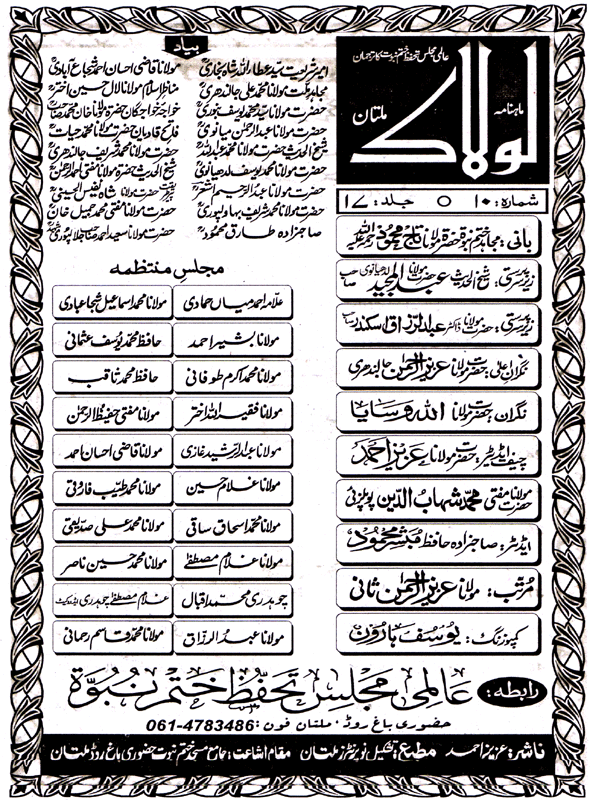 عالمی مجلس تحفظ ختم نبوت کا ترجمان
ماہنامہ
لولاک
ملتان
شمارہ: ۱۰ ○ جلد: ۱۷
بانی: مجاہد ختم نبوۃ حضرۃ مولانا تاج محمود رحمۃ اللہ علیہ
زیر سرپرستی: شیخ الحدیث حضرت مولانا عبدالمجید لدھیانوی صاحب
زیر سرپرستی: حضرت مولانا ڈاکٹر عبدالرزاق سکندر صاحب
نگران اعلیٰ: حضرت مولانا عزیز الرحمن جالندھری
نگران: حضرت مولانا اللہ وسایا
چیف ایڈیٹر: حضرت مولانا عزیز احمد
حضرت مولانا مفتی محمد شہاب الدین پوپلزئی
ایڈیٹر: صاحبزادہ حافظ مبشر محمود
مرتب: مولانا عزیز الرحمن ثانی
کمپوزنگ: یوسف ہارون
بیاد
امیر شریعت سید عطاء اللہ شاہ بخاری
مولانا قاضی احسان احمد شجاع آبادی
مجاہد ملت مولانا محمد علی جالندھری
مناظر اسلام مولانا لال حسین اختر
حضرت مولانا سید محمد یوسف بنوری
خواجہ خواجگان حضرۃ مولانا خان محمد صاحب
حضرت مولانا عبدالرحمن میانوی
فاتح قادیان حضرت مولانا محمد حیات
شیخ الحدیث حضرت مولانا محمد عبداللہ
حضرت مولانا محمد شریف جالندھری
حضرت مولانا محمد یوسف لدھیانوی
شیخ الحدیث حضرۃ مولانا مفتی احمد الرحمن
حضرت مولانا عبدالرحیم اشعر
حضرت مولانا شاہ نفیس الحسینی
حضرت مولانا محمد شریف بہاولپوری
حضرت مولانا مفتی محمد جمیل خان
صاحبزادہ طارق محمود
حضرت مولانا سعید احمد صاحب جلالپوری
مجلس منتظمہ
علامہ احمد میاں حمادی
مولانا محمد اسماعیل شجاعبادی
مولانا بشیر احمد
حافظ محمد یوسف عثمانی
مولانا محمد اکرم طوفانی
حافظ محمد ثاقب
مولانا فقیہ اللہ اختر
مولانا مفتی حفیظ الرحمن
مولانا عبدالرشید غازی
مولانا قاضی احسان احمد
مولانا غلام حسین
مولانا محمد طیب فاروقی
مولانا محمد اسحاق ساقی
مولانا محمد علی صدیقی
مولانا غلام مصطفےٰ
مولانا محمد حسین ناصر
چوہدری محمد اقبال
غلام مصطفےٰ چوہدری ایڈووکیٹ
مولانا عبدالرزاق
مولانا محمد قاسم رحمانی
رابطہ: عالمی مجلس تحفظ ختم نبوۃ
حضوری باغ روڈ، ملتان فون: 061-4783486
ناشر: عزیز احمد مطبع: تشکیل نو پرنٹرز ملتان مقام اشاعت: جامع مسجد ختم نبوت حضوری باغ روڈ ملتان